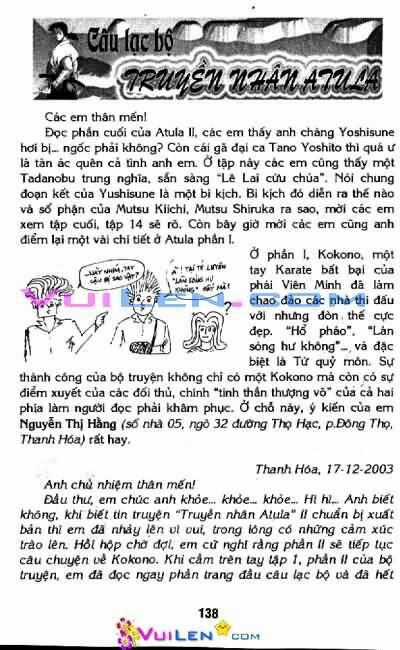 Câu lạc bộ
TRUYỀN NHÂN ATULA
Các em thân mến!
Đọc phần cuối của Atula II, các em thấy anh chàng Yoshisune
hơi bị... ngốc phải không? Còn cái gã đại ca Tano Yoshito thì quá ư
là tàn ác quên cả tình anh em. Ở tập này các em cũng thấy một
Tadanobu trung nghĩa, sẵn sàng "Lê Lai cứu chúa". Nói chung
đoạn kết của Yushisune là một bi kịch. Bi kịch đó diễn ra thế nào
và số phận của Mutsu Kiichi, Mutsu Shiruka ra sao, mời các em
xem tập cuối, tập 14 sẽ rõ. Còn bây giờ mời các em cùng anh
điểm lại một vài chi tiết ở Atula phần I.
...MÀY NHÌN, TAY
SẬU BỊ SAO VẬY?
À! TẠI TỚ LUYỆN
"LÀN SÓNG HƯ
KHÔNG"
?
Ở phần I, Kokono, một
tay Karate bất bại của
phái Viên Minh đã làm
chao đảo các nhà thi đấu
với nhưng đòn thế cực
đẹp. "Hổ pháo", "Làn
sóng hư không"... và đặc
biệt là Tứ quỷ môn. Sự
thành công của bộ truyện không chỉ có một Kokono mà còn có sự
điểm xuyết của các đối thủ, chính "tinh thần thượng võ" của cả hai
phía làm người đọc phải khâm phục. Ở chỗ này, ý kiến của em
Nguyễn Thị Hằng (số nhà 05, ngõ 32 đường Thọ Hạc, p.Đông Thọ,
Thanh Hóa) rất hay.
Thanh Hóa, 17-12-2003
Anh chủ nhiệm thân mến!
Đầu thư, em chúc anh khỏe... khỏe... khỏe... Hi hi... Anh biết
không, khi biết tin truyện "Truyền nhân Atula" II chuẩn bị xuất
bản thì em đã nhảy lên vì vui, trong lòng có những cảm xúc
trào lên. Hồi hộp chờ đợi, em cứ nghĩ rằng phần II sẽ tiếp tục
câu chuyện về Kokono. Khi cầm trên tay tập 1, phần II của bộ
truyện, em đã đọc ngay phần trang đầu câu lạc bộ và đã hết
138
VUILEN.COM
VUILEN.COM